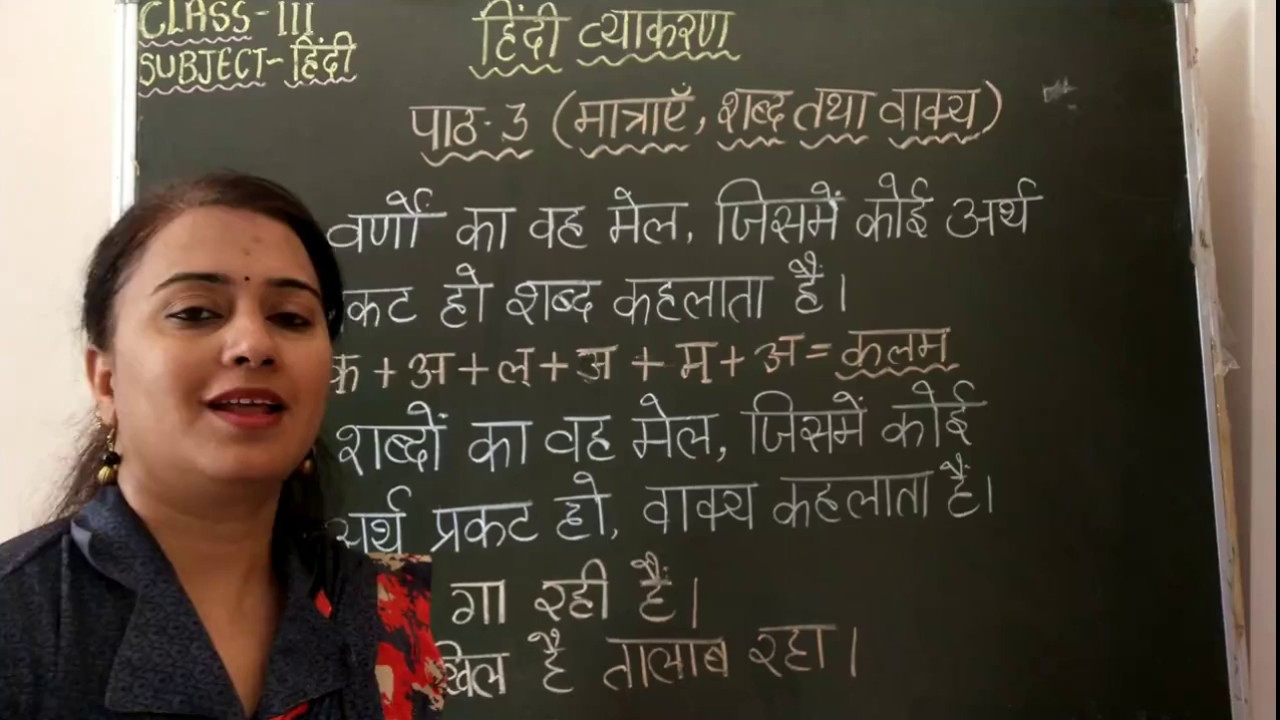 CLASS-III
SUBJECT-हिंदी
हिंदी व्याकरण
पाठ-3 (मात्राएँ, शब्द तथा वाक्य)
वर्णों का वह मेल, जिसमें कोई अर्थ
हो शब्द कहलाता है।
+ अ + ल् + अ + म् + अ = कलम
शब्दों का वह मेल, जिसमें कोई
अर्थ प्रकट हो, वाक्य कहलाता है।
गा रही है।
है तालाब रहा।